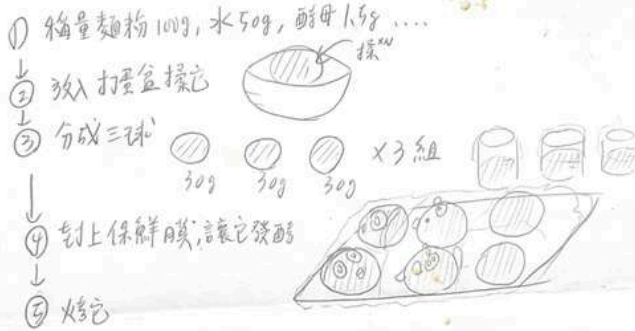 ① 秤量麵粉100g, 水50g, 酵母1.5g ....
② 放入打蛋盆揉它
揉
③ 分成三球
30g 30g 30g ×3組
④ 封上保鮮膜,讓它發酵
⑤ 烤它